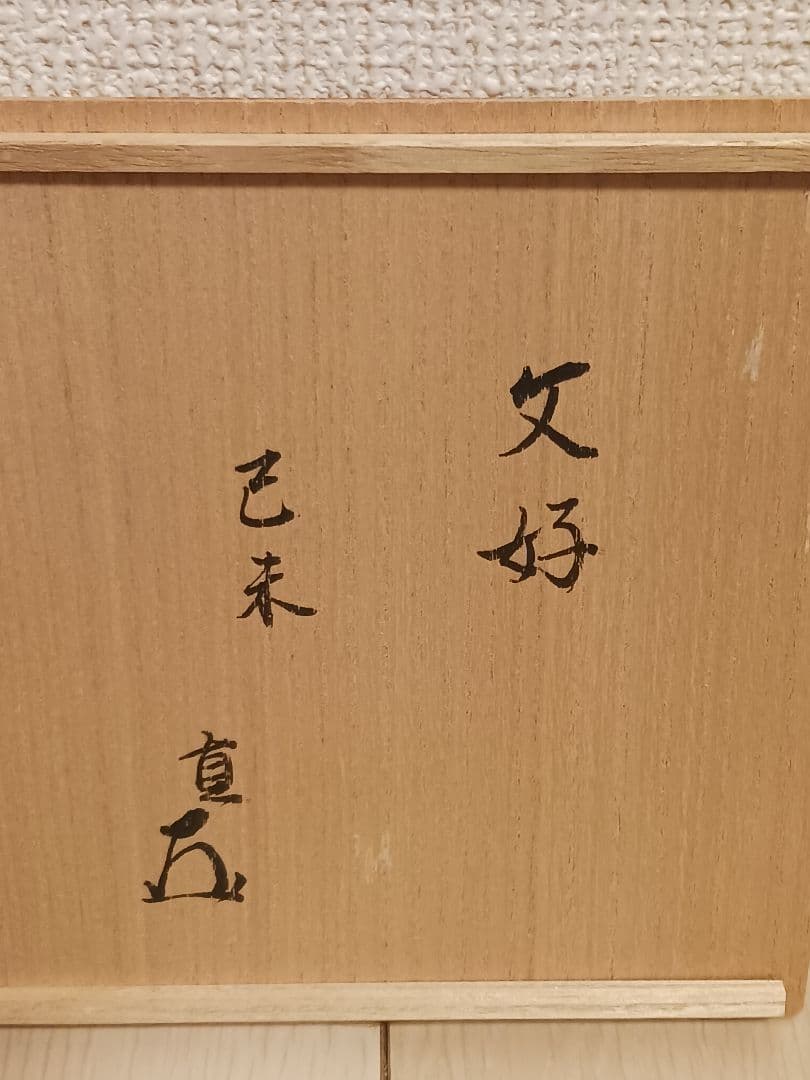 文好
己未
直